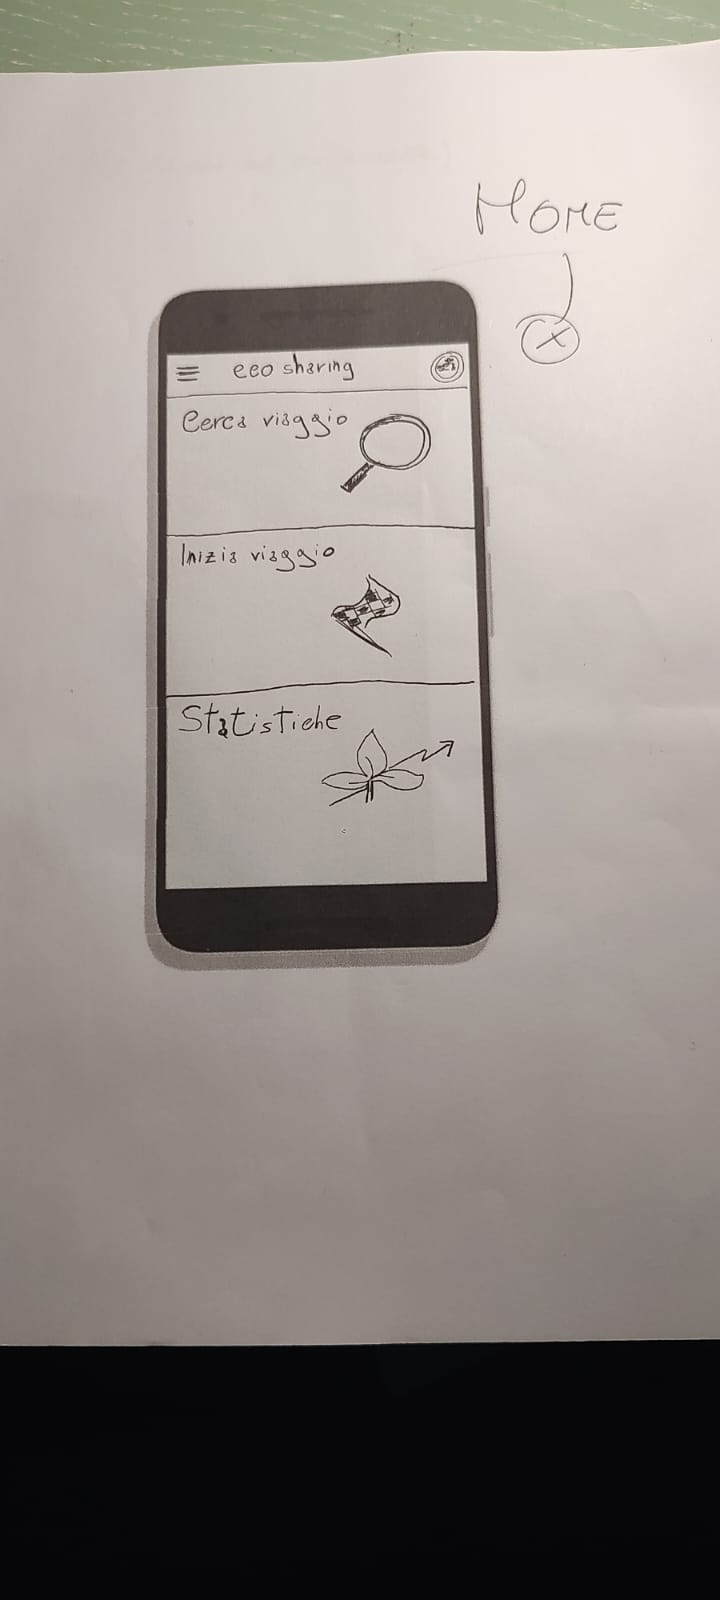 HOME
x
eco sharing
Cerca viaggio
Inizia viaggio
Statistiche